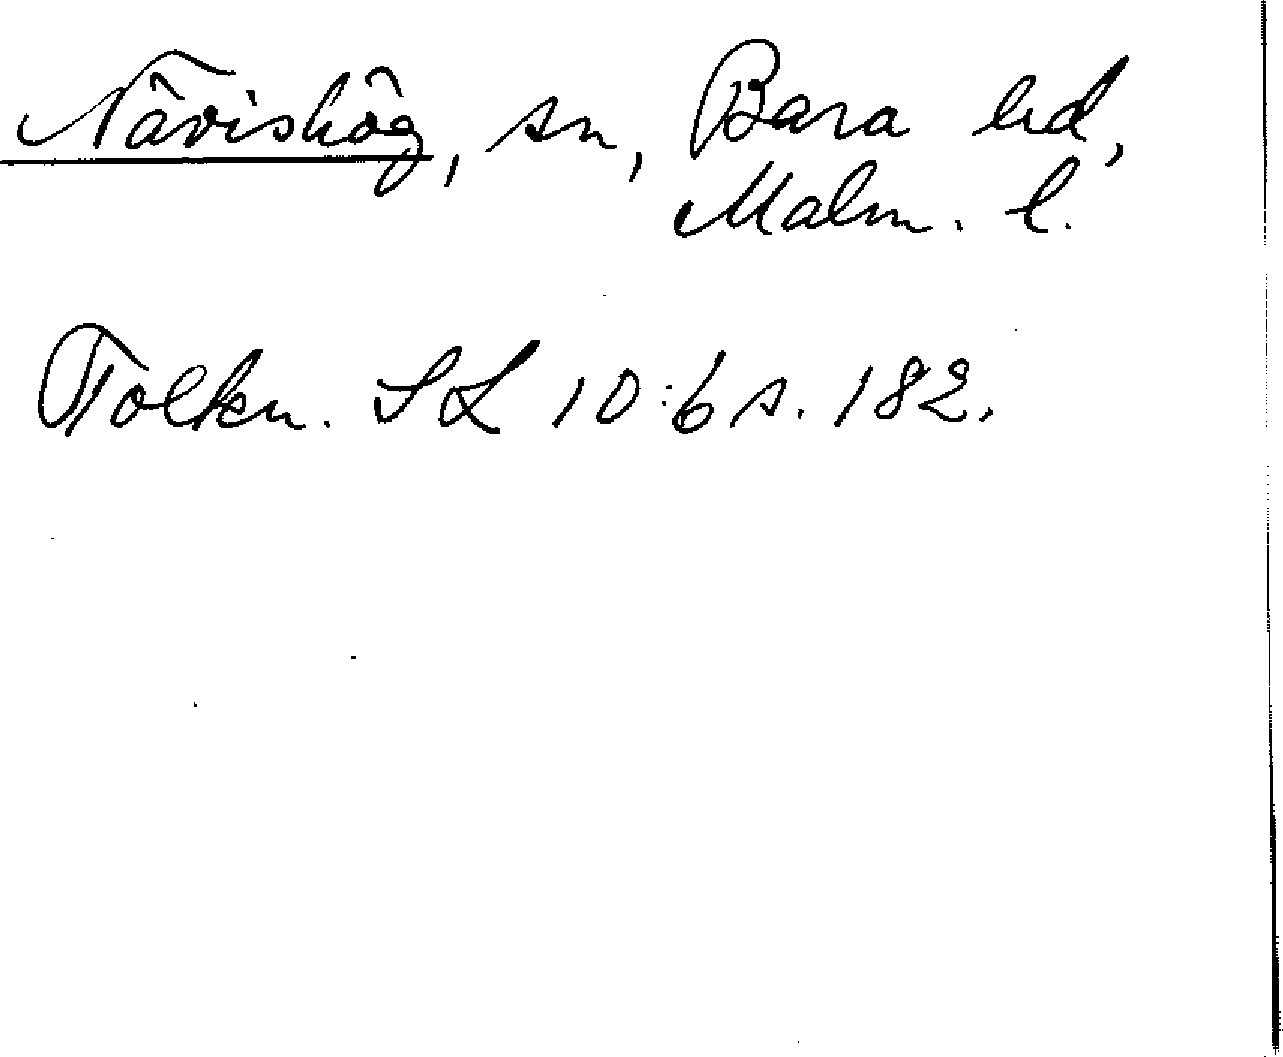 Nâvishôg, sn, Bara hd,
Malm. l.
Tolkn. SL 10:6 s. 182.